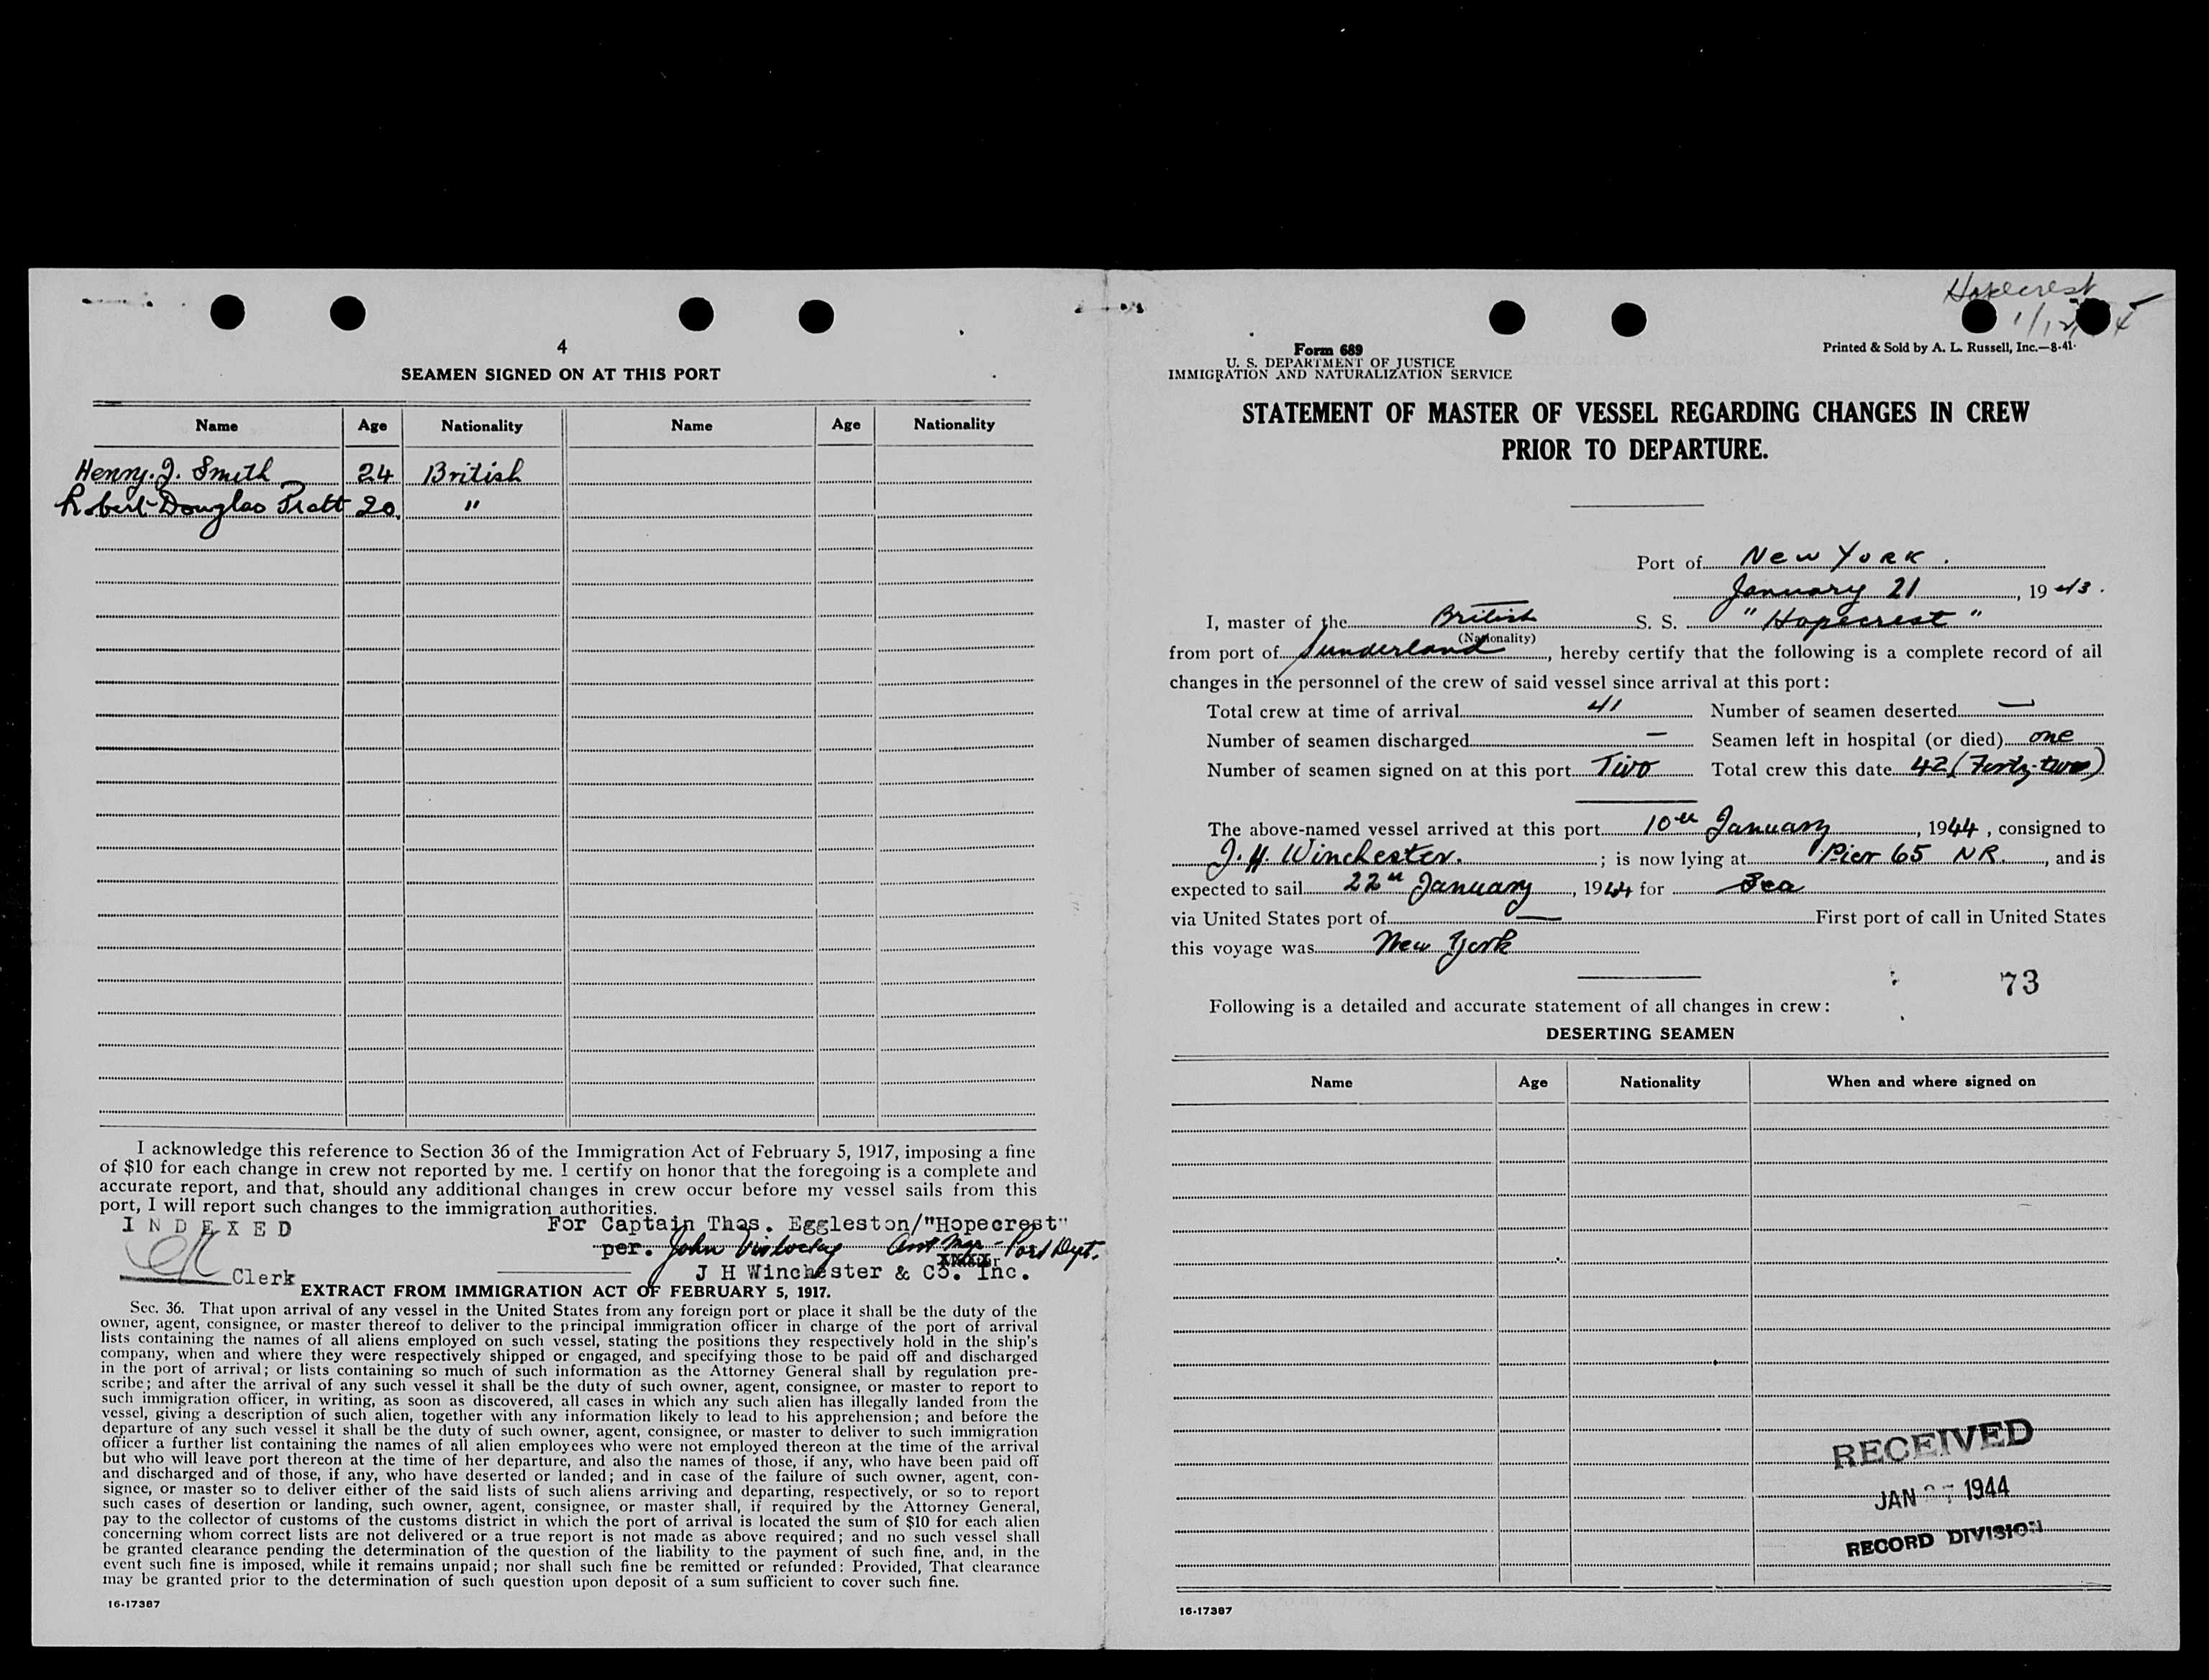 4
SEAMEN SIGNED ON AT THIS PORT
Name Age Nationality Name Age Nationality
Henry. J. Smith 24 British
Robert Douglas Pratt 20 "
I acknowledge this reference to Section 36 of the Immigration Act of February 5, 1917, imposing a fine
of $10 for each change in crew not reported by me. I certify on honor that the foregoing is a complete and
accurate report, and that, should any additional changes in crew occur before my vessel sails from this
port, I will report such changes to the immigration authorities.
INDEXED
For Captain Thos. Eggleston/"Hopecrest"
per. John Port Dept.
Clerk
J H Winchester & Co. Inc.
EXTRACT FROM IMMIGRATION ACT OF FEBRUARY 5, 1917.
Sec. 36. That upon arrival of any vessel in the United States from any foreign port or place it shall be the duty of the
owner, agent, consignee, or master thereof to deliver to the principal immigration officer in charge of the port of arrival
lists containing the names of all aliens employed on such vessel, stating the positions they respectively hold in the ship's
company, when and where they were respectively shipped or engaged, and specifying those to be paid off and discharged
in the port of arrival; or lists containing so much of such information as the Attorney General shall by regulation pre-
scribe; and after the arrival of any such vessel it shall be the duty of such owner, agent, consignee, or master to report to
such immigration officer, in writing, as soon as discovered, all cases in which any such alien has illegally landed from the
vessel, giving a description of such alien, together with any information likely to lead to his apprehension; and before the
departure of any such vessel it shall be the duty of such owner, agent, consignee, or master to deliver to such immigration
officer a further list containing the names of all alien employees who were not employed thereon at the time of the arrival
but who will leave port thereon at the time of her departure, and also the names of those, if any, who have been paid off
and discharged and of those, if any, who have deserted or landed; and in case of the failure of such owner, agent, con-
signee, or master so to deliver either of the said lists of such aliens arriving and departing, respectively, or so to report
such cases of desertion or landing, such owner, agent, consignee, or master shall, if required by the Attorney General,
pay to the collector of customs of the customs district in which the port of arrival is located the sum of $10 for each alien
concerning whom correct lists are not delivered or a true report is not made as above required; and no such vessel shall
be granted clearance pending the determination of the question of the liability to the payment of such fine, and, in the
event such fine is imposed, while it remains unpaid; nor shall such fine be remitted or refunded: Provided, That clearance
may be granted prior to the determination of such question upon deposit of a sum sufficient to cover such fine.
16-17387
Hopecrest
Form 689
U. S. DEPARTMENT OF JUSTICE
IMMIGRATION AND NATURALIZATION SERVICE
Printed & Sold by A. L. Russell, Inc.—8-41
STATEMENT OF MASTER OF VESSEL REGARDING CHANGES IN CREW
PRIOR TO DEPARTURE.
Port of New York.
January 21, 1943.
I, master of the British S. S. "Hopecrest"
(Nationality)
from port of Sunderland, hereby certify that the following is a complete record of all
changes in the personnel of the crew of said vessel since arrival at this port:
Total crew at time of arrival 41 Number of seamen deserted —
Number of seamen discharged — Seamen left in hospital (or died) one
Number of seamen signed on at this port Two Total crew this date 42 (Forty-two)
The above-named vessel arrived at this port 10th January, 1944, consigned to
J. H. Winchester. ; is now lying at Pier 65 NR., and is
expected to sail 22nd January, 1944 for Sea
via United States port of — First port of call in United States
this voyage was New York
73
Following is a detailed and accurate statement of all changes in crew:
DESERTING SEAMEN
Name Age Nationality When and where signed on
RECEIVED
JAN 1944
RECORD DIVISION
16-17387